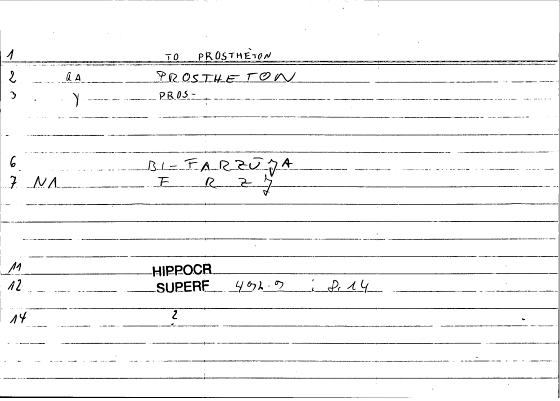 1 TO PROSTHETON
2 aA PROSTHETON
3 Y PROS-
6 BI-FARZŪǦA
7 NA F R Z Ǧ
11 HIPPOCR
12 SUPERF : 8,14
14 2